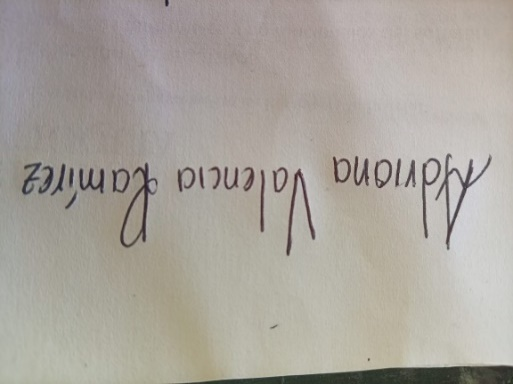 Adriana Valencia Ramírez